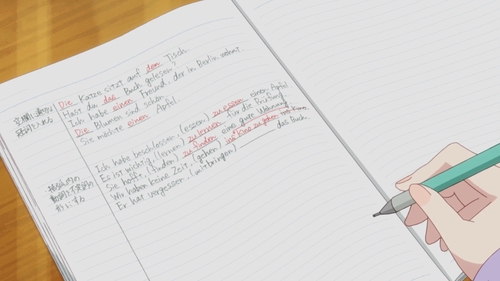 Die Katze sitzt auf dem Tisch.
Hast du das Buch gelesen?
Ich habe einen Freund, der in Berlin wohnt.
Die Blumen sind schön.
Sie möchte einen Apfel.
Ich habe beschlossen, (essen) zu essen einen Apfel
Es ist wichtig, (lernen) zu lernen für die Prüfung
Sie hofft, (finden) zu finden eine gute Wohnung
Wir haben keine Zeit, (gehen) ins Kino zu gehen
Er hat vergessen, (mitbringen) das Buch.